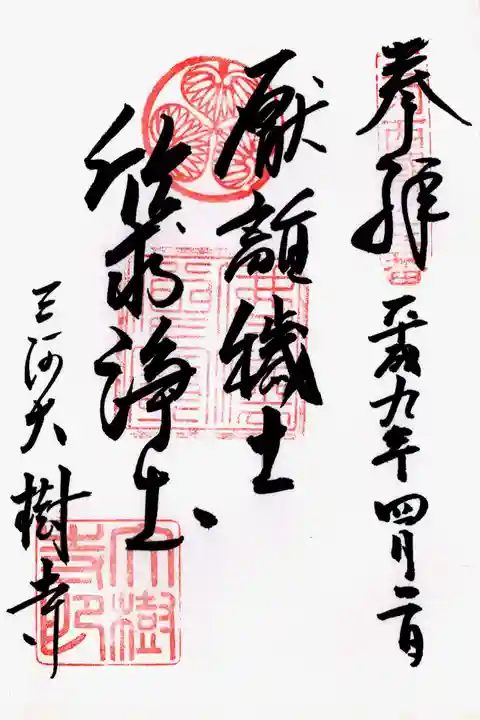 奉拝
平成九年四月一日
厭離穢土
欣求浄土
三河大樹寺
大樹寺印